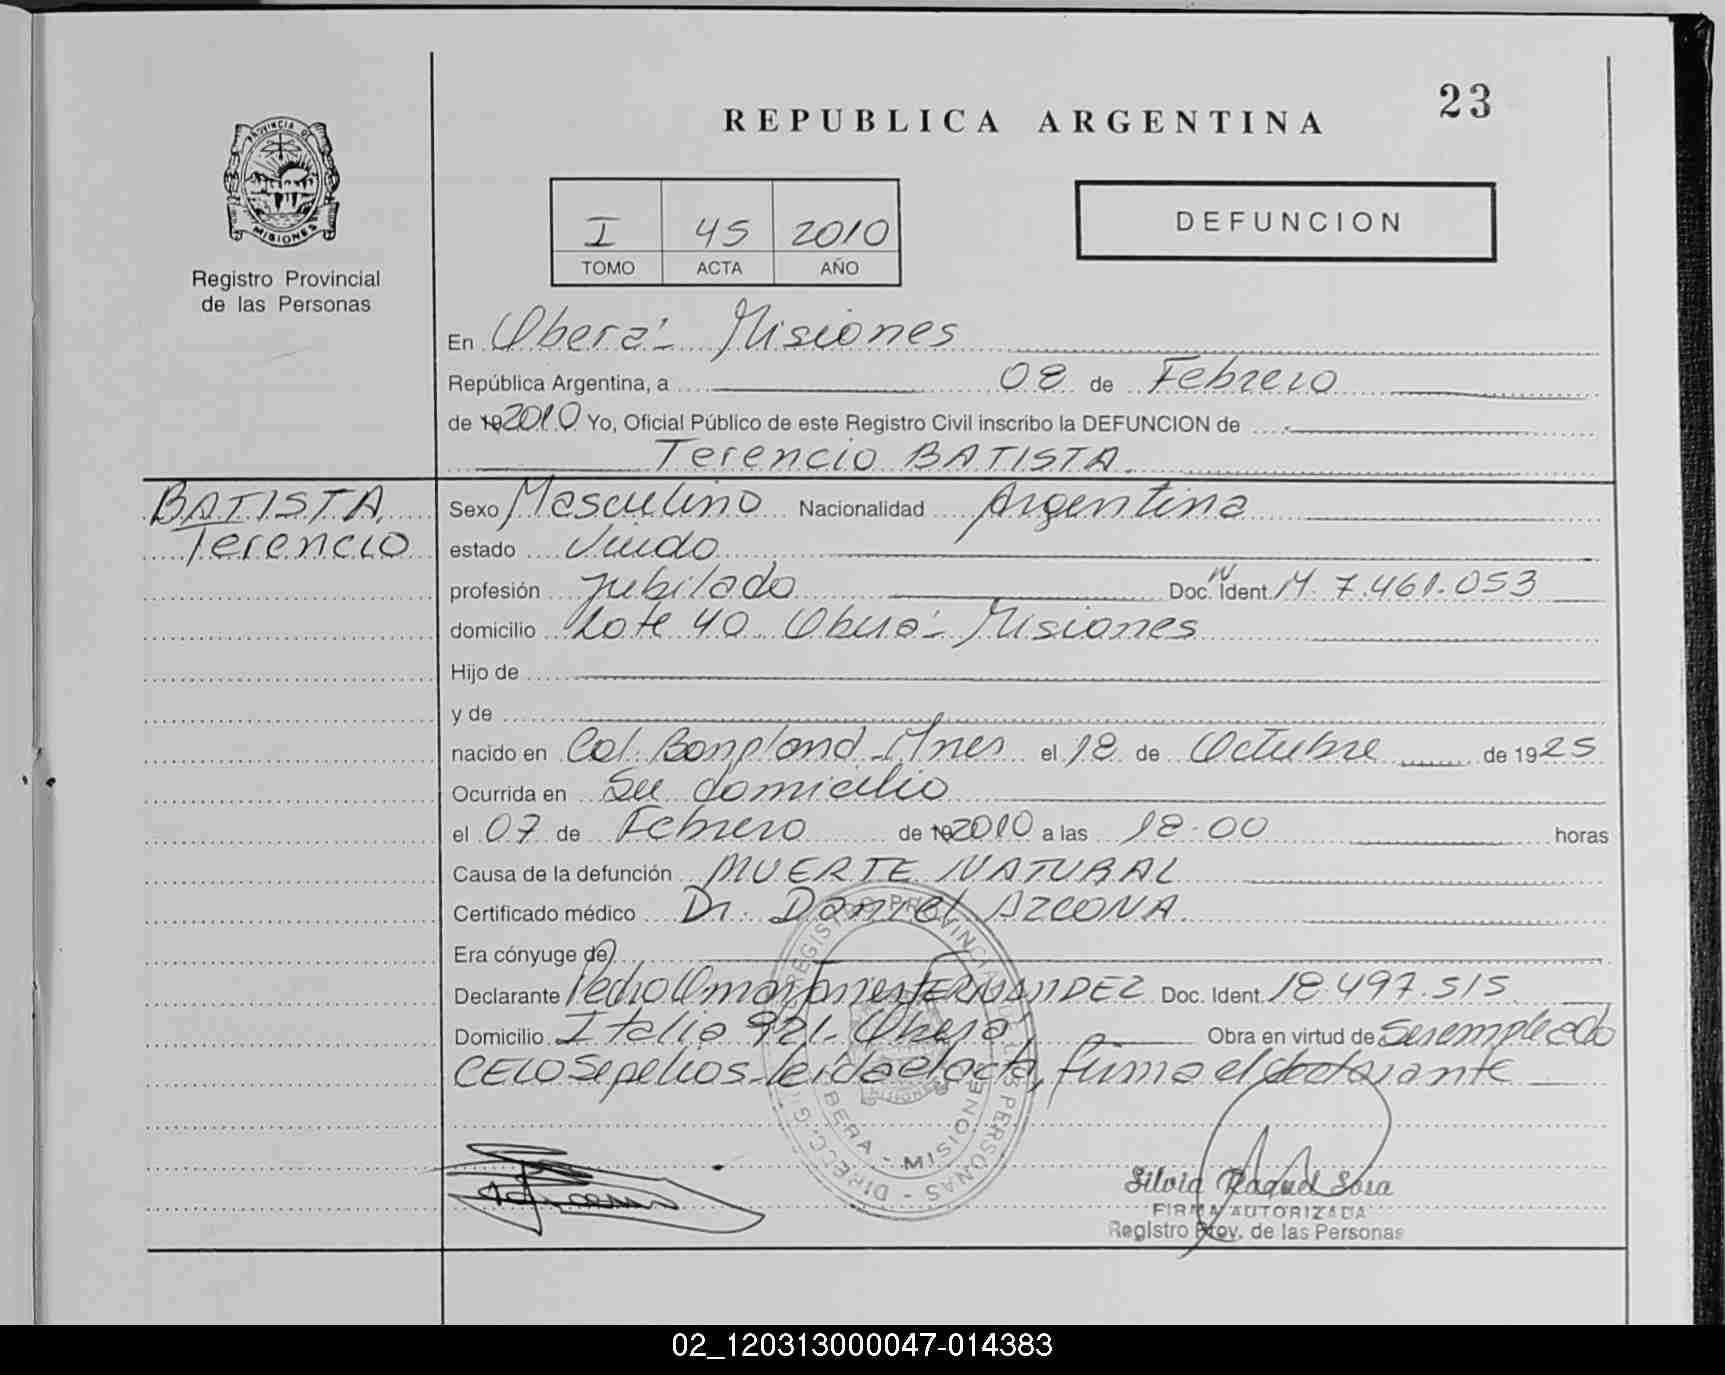 23
REPUBLICA ARGENTINA
PROVINCIA DE
MISIONES
Registro Provincial
de las Personas
I 45 2010
TOMO ACTA AÑO
DEFUNCION
En Oberá - Misiones
República Argentina, a 08 de Febrero
de 19 2010 Yo, Oficial Público de este Registro Civil inscribo la DEFUNCION de
Terencio BATISTA
BATISTA
Terencio
Sexo Masculino Nacionalidad Argentina
estado Viudo
profesión jubilado Doc. Ident. M 7.461.053
domicilio Lote 40 Oberá - Misiones
Hijo de
y de
nacido en Col. Bonpland - Mnes el 18 de Octubre de 1925
Ocurrida en Su domicilio
el 07 de Febrero de 19 2010 a las 18.00 horas
Causa de la defunción MUERTE NATURAL
Certificado médico Dr. Daniel AZCONA
Era cónyuge de
Declarante Pedro Omar FERNANDEZ Doc. Ident. 18.497.515
Domicilio Italia 921 - Oberá Obra en virtud de Ser empleado
CELO Sepelios - leída el acta, firma el declarante
REGISTRO PROVINCIAL DE LAS PERSONAS - DIRECC. G
OBERA - MISIONES
Silvia Raquel Sosa
FIRMA AUTORIZADA
Registro Prov. de las Personas
02_120313000047-014383